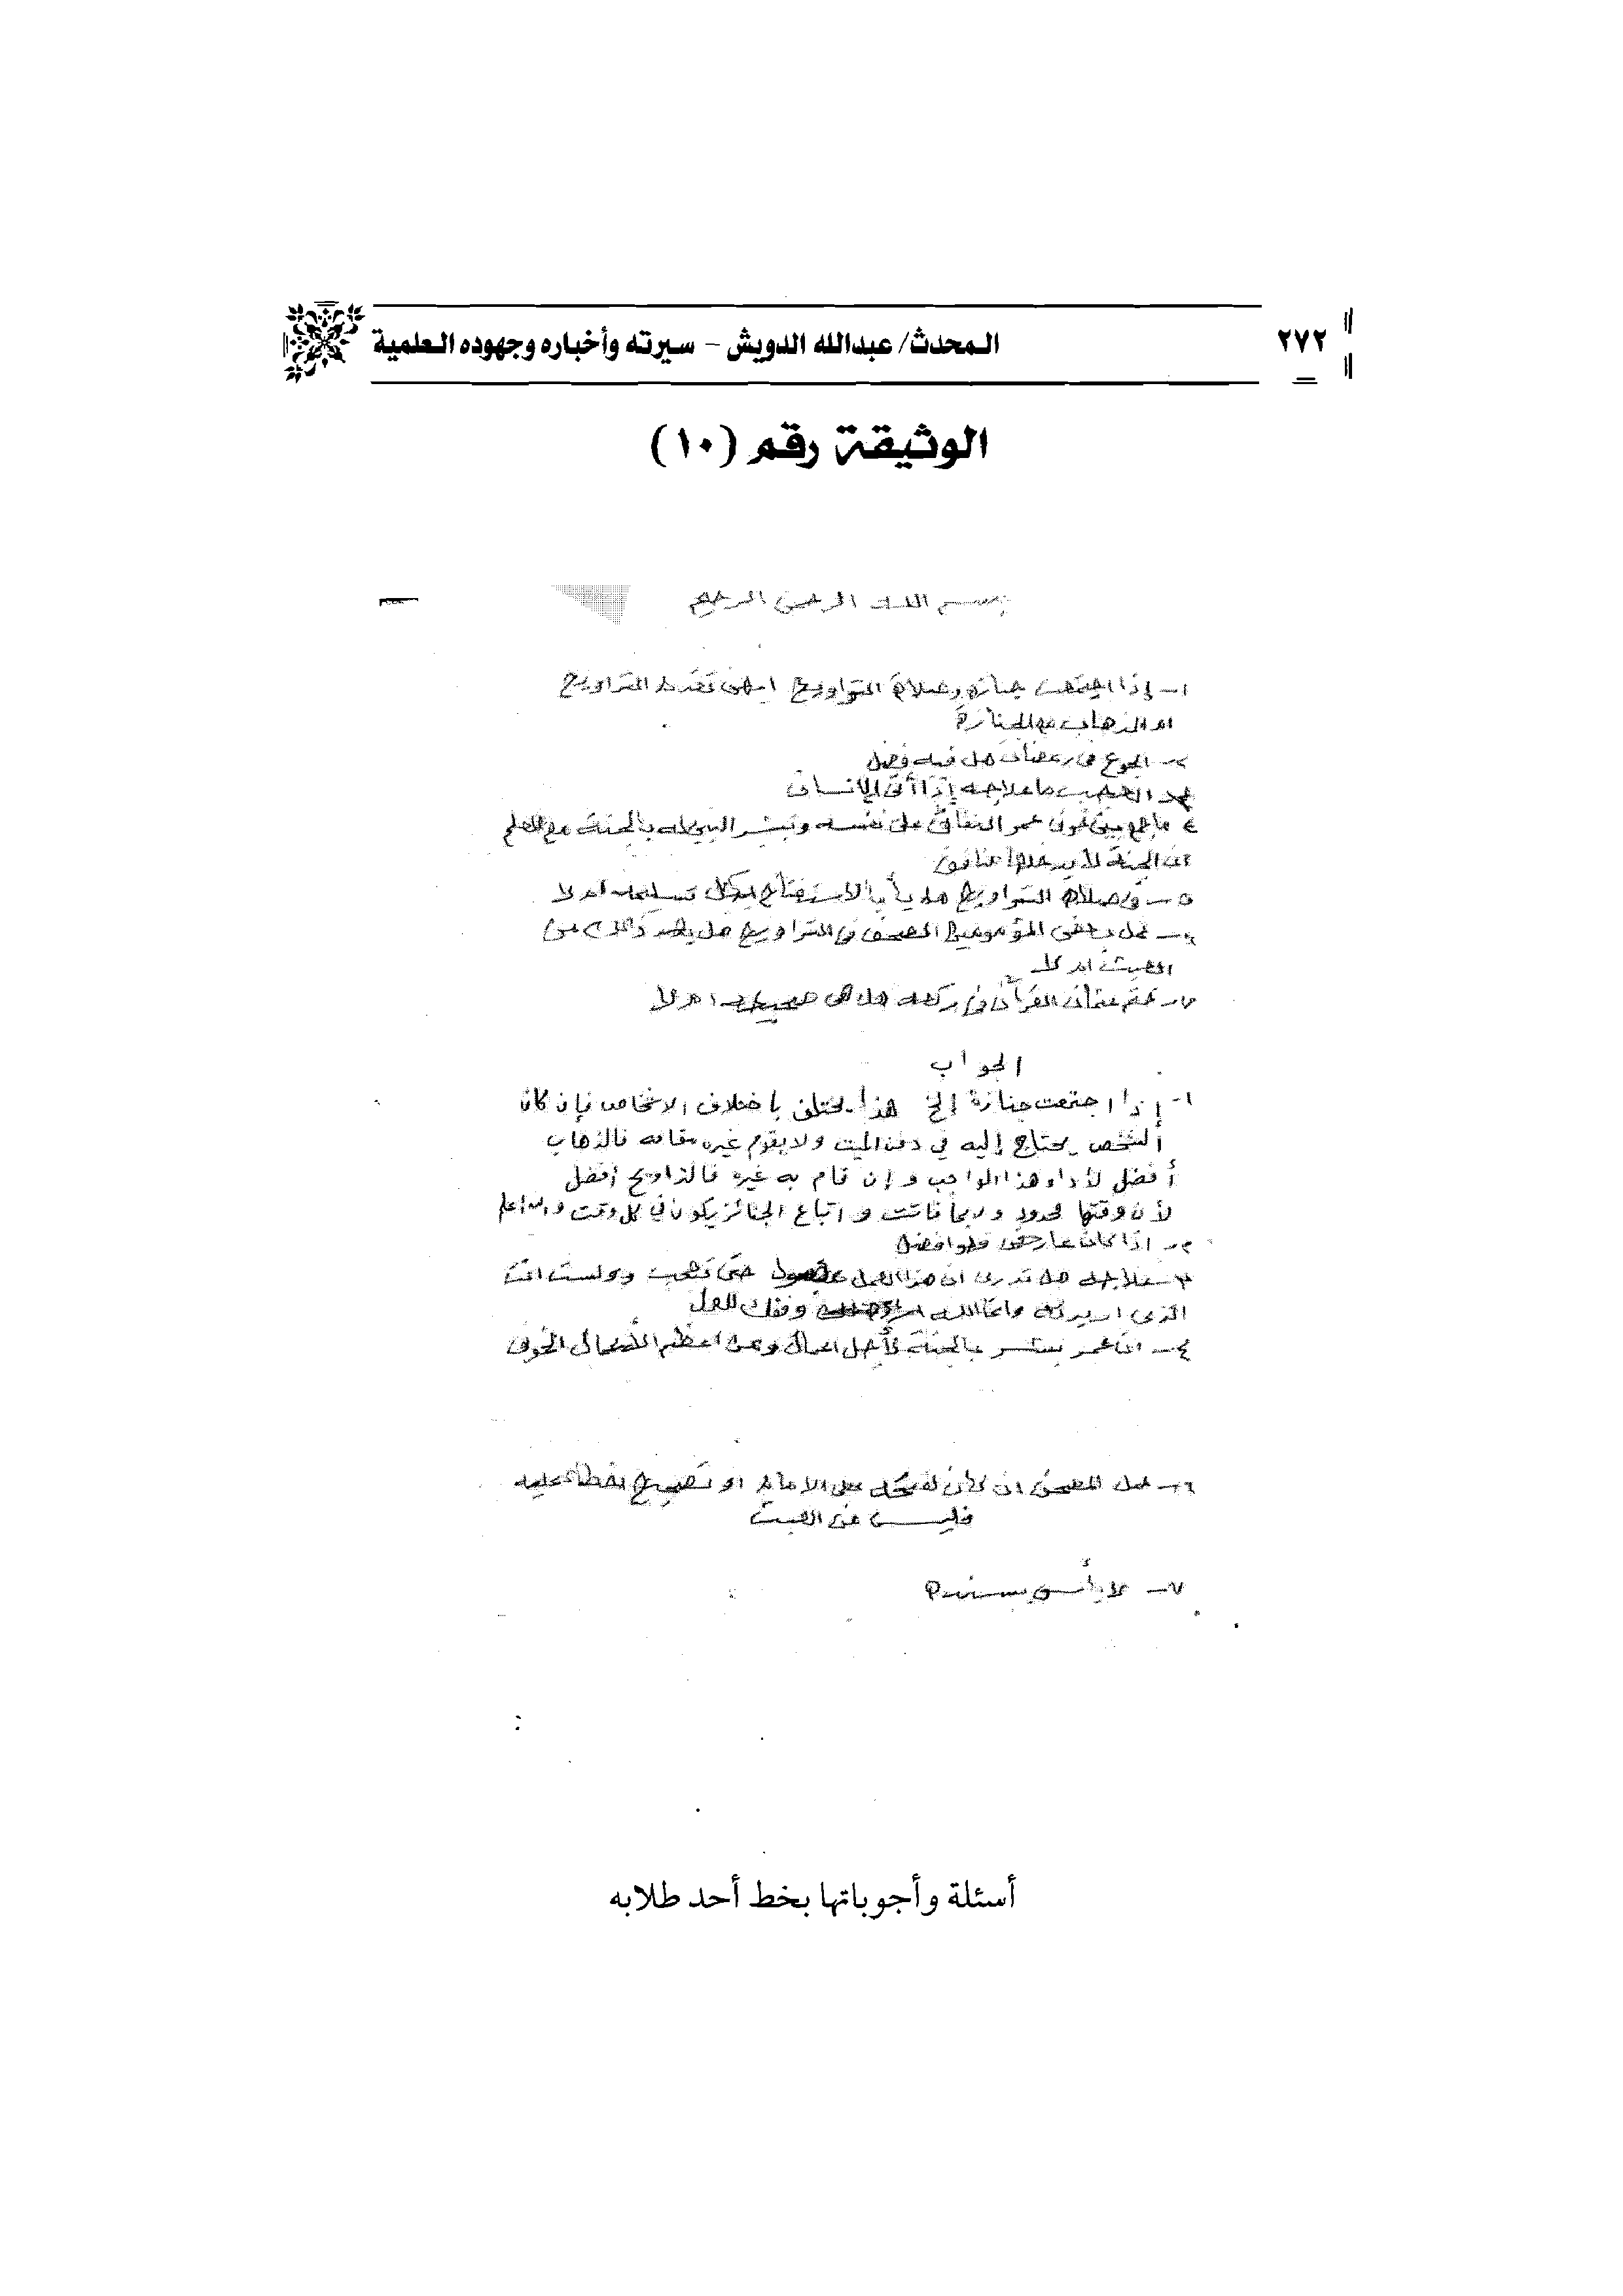 ٢٧٢
المحدث/ عبدالله الدويش - سيرته وأخباره وجهوده العلمية
الوثيقة رقم (١٠)
بسم الله الرحمن الرحيم
١- إذا اجتمعت جنازة وصلاة التراويح ايهن تقدم التراويح
او الذهاب مع الجنازة
٢- الجوع في رمضان هل فيه فضل
٣- العجب ما علاجه إذا أتى الإنسان
٤ ما الجمع بين خوف عمر النفاق على نفسه وتبشير النبي له بالجنة مع العلم
ان الجنة لا يدخلها منافق
٥- في صلاة التراويح هل يأتي بالاستفتاح بكل تسليمة ام لا
٦- حمل بعض المؤمومين المصحف في التراويح هل يعد ذلك من
العبث ام لا
٧- ختم عثمان القرآن في ركعة هل هي صحيحة ام لا
الجواب
١- إذا اجتمعت جنازة إلخ هذا يختلف باختلاف الاشخاص فإن كان
الشخص يحتاج إليه في دفن الميت ولا يقوم غيره مقامه فالذهاب
أفضل لأداء هذا الواجب وإن قام به غيره فالتراويح أفضل
لأن وقتها محدود وربما فاتت واتباع الجنائز يكون في كل وقت والله أعلم
٢- اذا كان عارض فهو افضل
٣- علاجه هل تدري ان هذا العمل مقبول حتى تعجب ولست انت
الذي وإنما الله وفقك للعمل
٤- ان عمر بشر بالجنة لأجل اعماله ومن اعظم الأعمال الخوف
٦- حمل المصحف ان كان لفتحه على الامام او تصحيح خطأ عليه
فليس من العبث
٧- لا بأس بسنده
أسئلة وأجوباتها بخط أحد طلابه